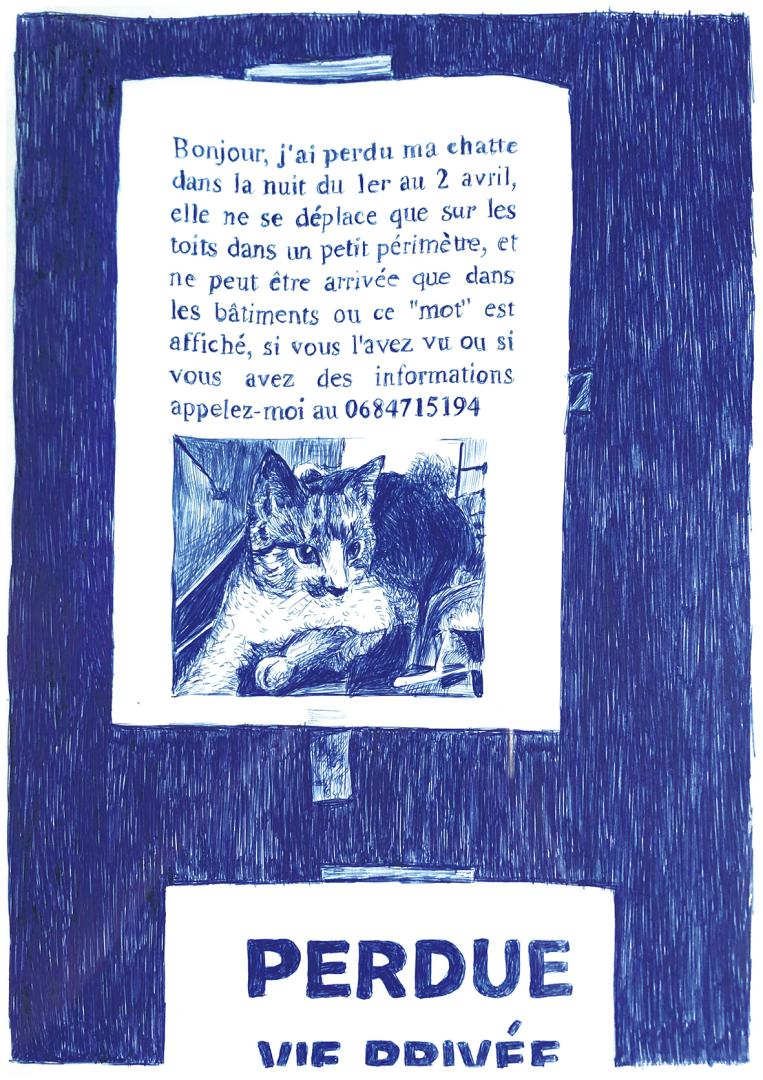 Bonjour, j'ai perdu ma chatte
dans la nuit du 1er au 2 avril,
elle ne se déplace que sur les
toits dans un petit périmètre, et
ne peut être arrivée que dans
les bâtiments ou ce "mot" est
affiché, si vous l'avez vu ou si
vous avez des informations
appelez-moi au 0684715194
PERDUE
VIE PRIVÉE